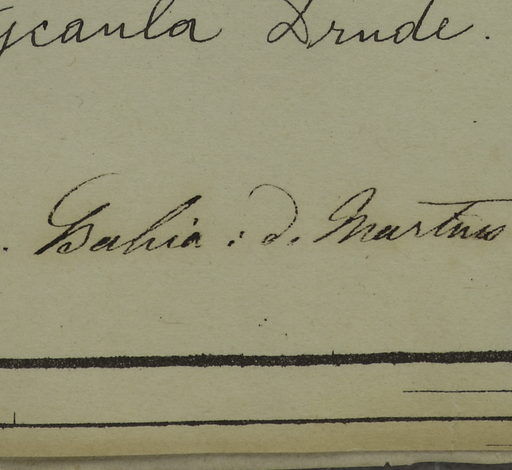 ycaula Drude.
. Bahia : d. Martius